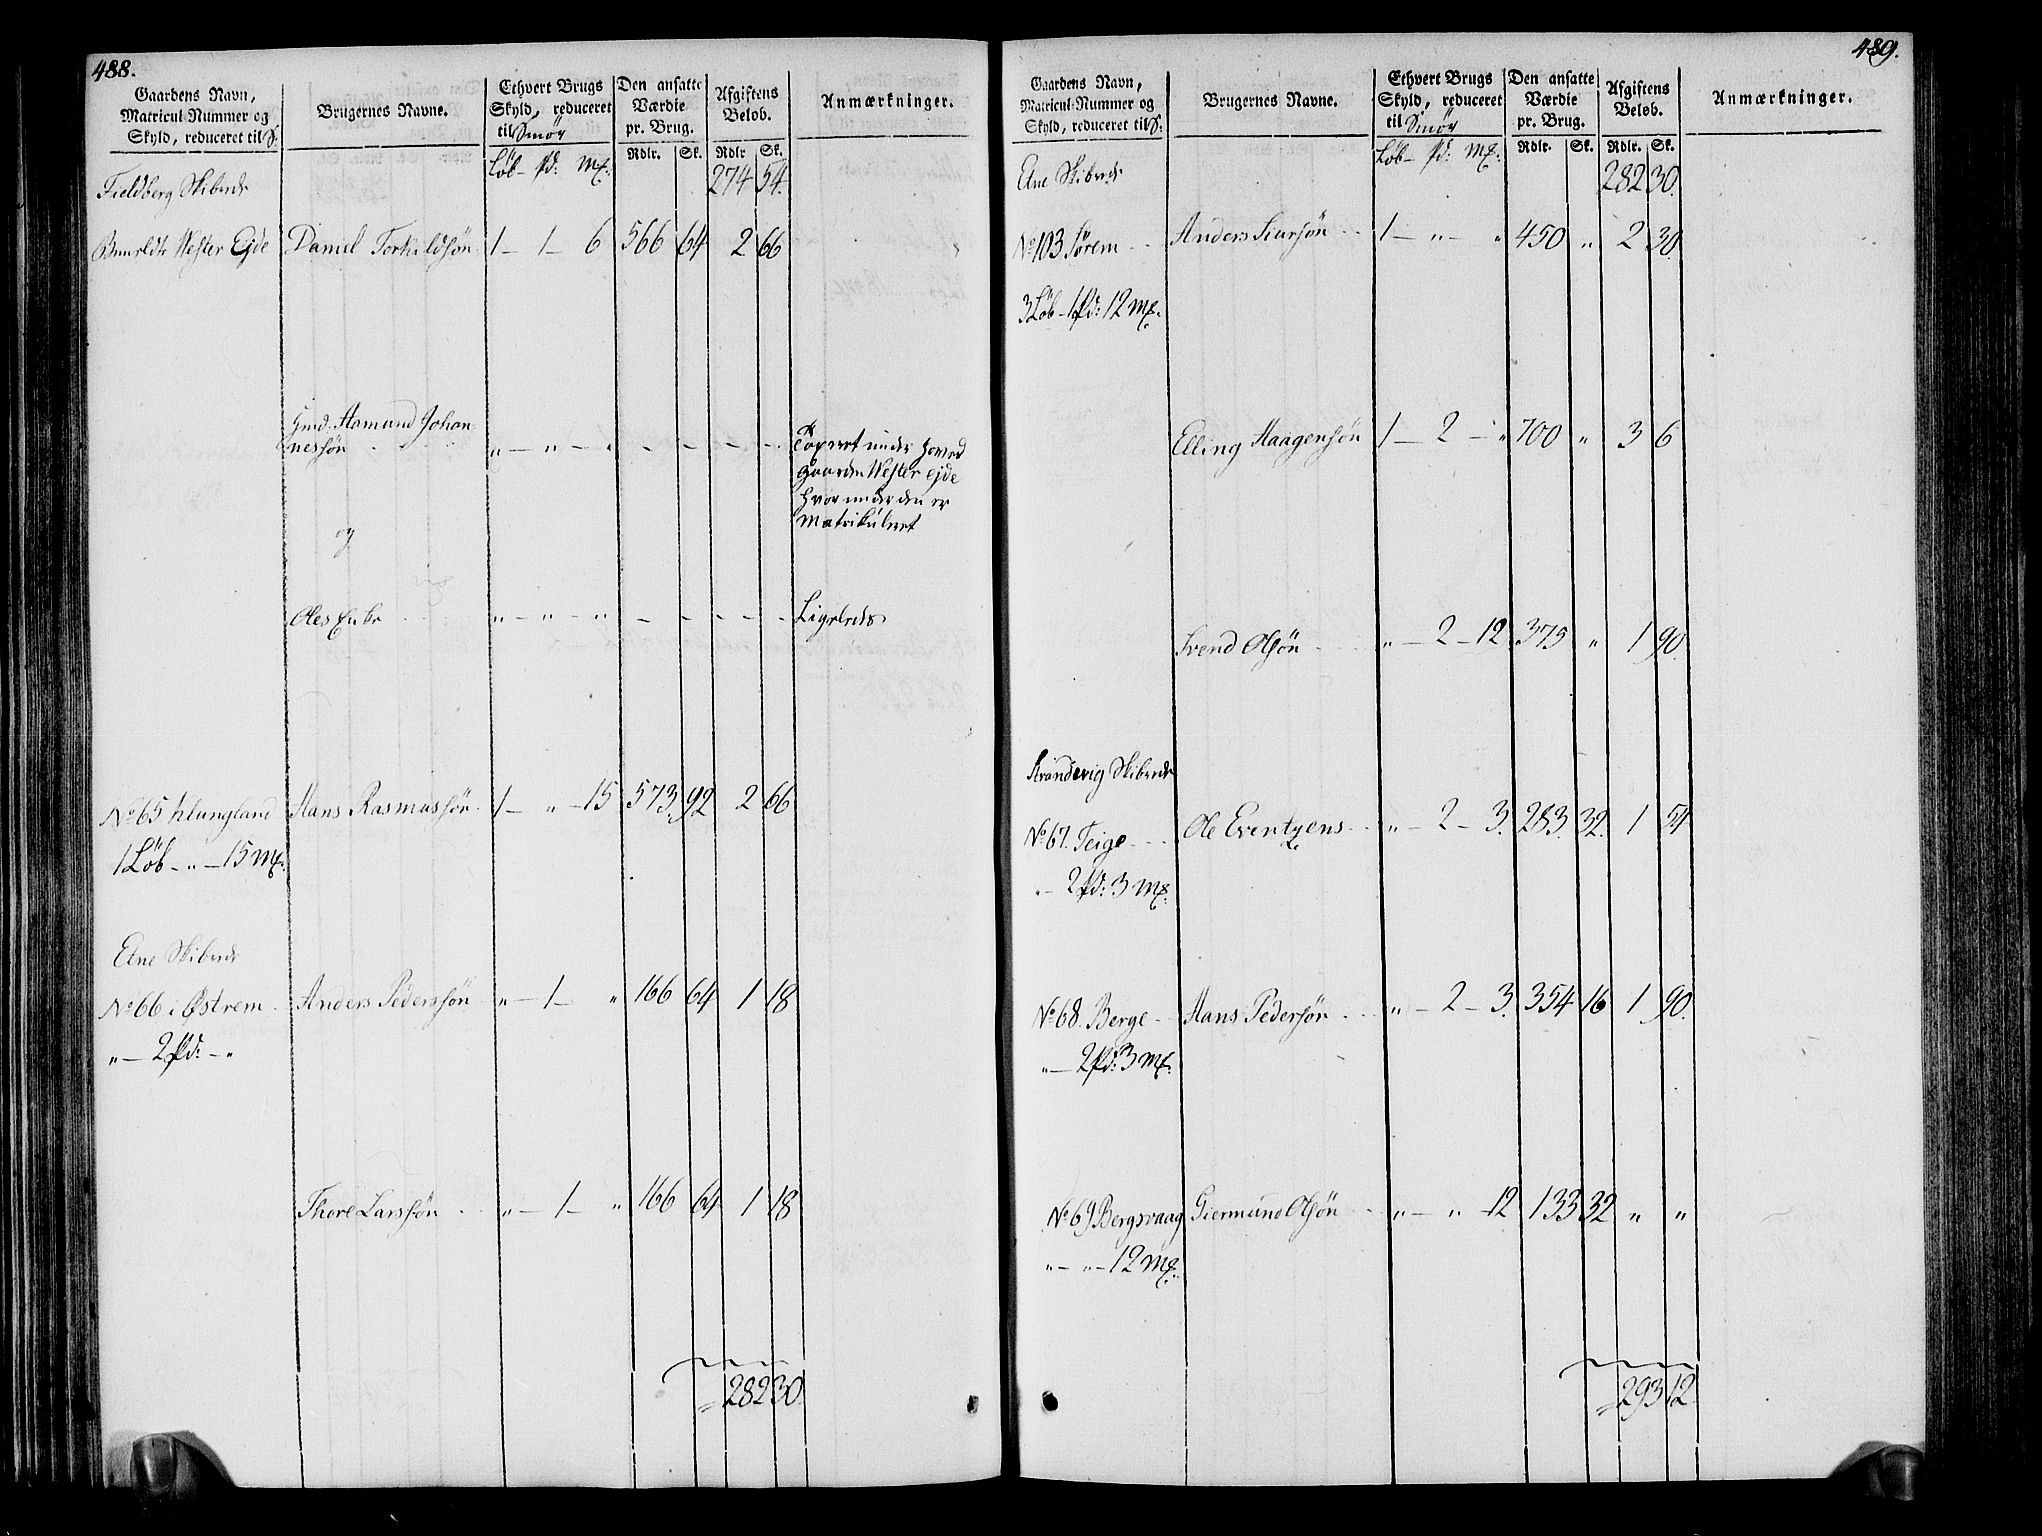 488.
Gaardens Navn, Matricul-Nummer og Skyld, reduceret til S:
Brugernes Navne.
Ethvert Brugs Skyld, reduceret til Smør
Den ansatte Værdie pr. Brug.
Afgiftens Beløb.
Anmærkninger.
Løb - Pd: Mk: Rdlr. Sk. Rdlr Sk.
Fieldberg Skibrede 274 54.
Wester Ejde Daniel Torkildsøn 1 - 1 - 6 566 64 2 66
Hmd. Aamund Johan-
nessøn „ - „ - - - - - -
Taxeret under Hoved
Gaarden Wester Ejde
hvorunder den er
matrikuleret
og
Oles Enke „ - „ - „ - - - - - Ligeledes
No 65 Klungland Hans Rasmussøn 1 - „ - 15 573 92 2 66
1 Løb - „ - 15 Mk:
Etne Skibrede
No 66 i Østrem Anders Pederssøn „ - 1 - „ 166 64 1 18
„ - 2 Pd: - „
Thore Larssøn „ - 1 - „ 166 64 1 18
282 30.
489.
Gaardens Navn, Matricul-Nummer og Skyld, reduceret til S:
Brugernes Navne.
Ethvert Brugs Skyld, reduceret til Smør
Den ansatte Værdie pr. Brug.
Afgiftens Beløb.
Anmærkninger.
Løb - Pd: Mk: Rdlr. Sk. Rdlr. Sk.
Etne Skibrede 282 30.
No 103 Sørem Anders Siursøn 1 - „ - „ 450 „ 2 30.
3 Løb - 1 Pd: 12 Mk.
Elling Haagensøn 1 - 2 - „ 700 „ 3 6
Svend Olsøn „ - 2 - 12 375 „ 1 90.
Strandevig Skibrede
No 67. Teige Ole Eventzens „ - 2 - 3. 283. 32. 1 54
„ - 2 Pd: 3 Mk.
No 68. Berge Hans Pedersøn „ - 2 - 3. 354 16 1 90.
„ - 2 Pd: 3 Mk.
No 69 Bergsvaag Giermund Olsøn „ - „ - 12 133 32 „ „
„ - „ - 12 Mk.
293 12.